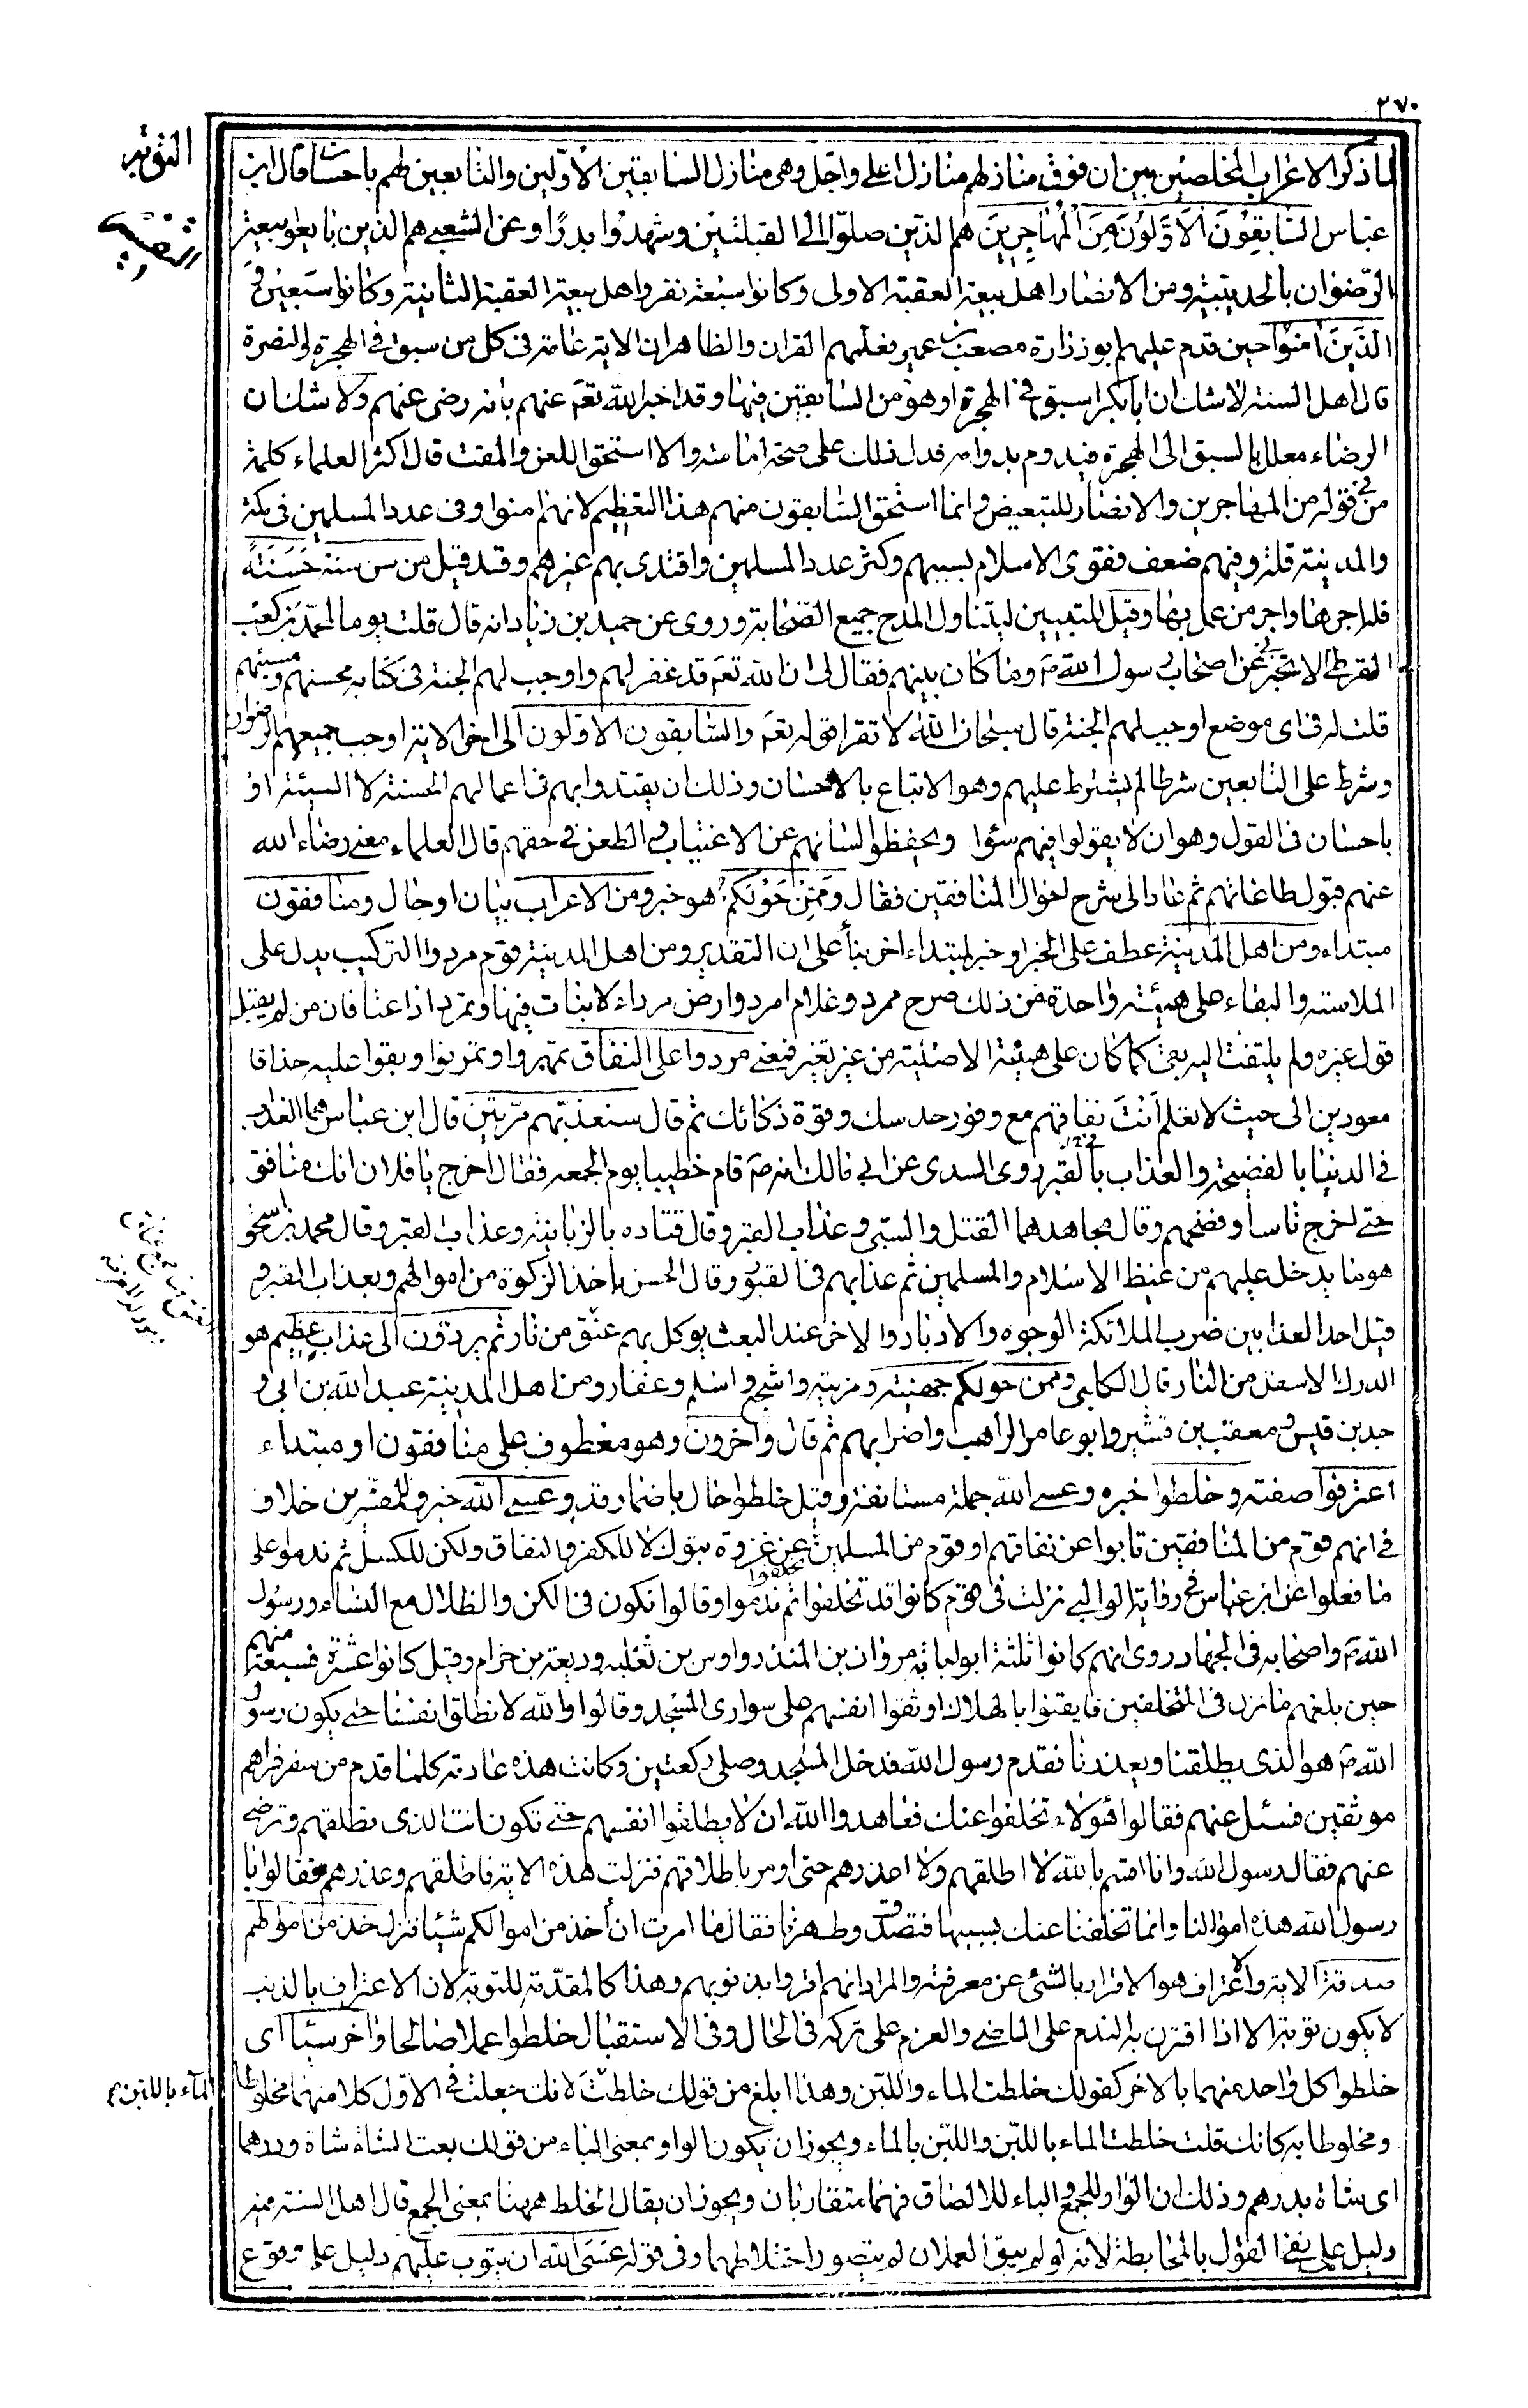 ٢٧٠
التوبة
التفسير
لما ذكر الاعراب المخلصين بين ان فوق منازلهم منازل اعلى واجل وهى منازل السابقين الاولين والتابعين لهم باحسان قال ابن
عباس السابقون الاولون من المهاجرين هم الذين صلوا الى القبلتين وشهدوا بدرا وعن الشعبى هم الذين بايعوا بيعة
الرضوان بالحديبية ومن الانصار اهل بيعة العقبة الاولى وكانوا سبعة نفر واهل بيعة العقبة الثانية وكانوا سبعين و
الذين امنوا حين قدم عليهم ابو زرارة مصعب بن عمير فعلمهم القران والظاهر ان الاية عامة فى كل من سبق فى الهجرة او النصرة
قال اهل السنة لا شك ان ابا بكر اسبق فى الهجرة او هو من السابقين فيها وقد اخبر الله تعم عنهم بانه رضى عنهم ولا شك ان
الرضاء معلل بالسبق الى الهجرة فيدوم بدوامه فدل ذلك على صحة امامته والا استحق اللعن والمقت قال اكثر العلماء كلمة
من فى قوله من المهاجرين والانصار للتبعيض وانما استحق السابقون منهم هذا التعظيم لانهم امنوا وفى عدد المسلمين فى مكة
والمدينة قلة وفيهم ضعف فقوى الاسلام بسببهم وكثر عدد المسلمين واقتدى بهم غيرهم وقد قيل من سن سنة حسنة
فله اجرها واجر من عمل بها وقيل للتبيين ليتناول المدح جميع الصحابة وروى عن حميد بن زياد انه قال قلت يوما لمحمد بن كعب
القرظى الا تخبرنى عن اصحاب رسول الله ص وما كان بينهم فقال لى ان الله تعم قد غفر لهم واوجب لهم الجنة فى كتابه محسنهم ومسيئهم
قلت له فى اى موضع اوجب لهم الجنة قال سبحان الله الا تقرا قوله تعم والسابقون الاولون الى اخر الاية اوجب جميعهم الرضوان
وشرط على التابعين شرطا لم يشترط عليهم وهو الاتباع بالاحسان وذلك ان يقتدوا بهم فى اعمالهم الحسنة لا السيئة او
باحسان فى القول وهو ان لا يقولوا فيهم سوٴا ويحفظوا لسانهم عن الاغتياب والطعن فى حقهم قال العلماء معنى رضاء الله
عنهم قبول طاعاتهم ثم عاد الى شرح احوال المنافقين فقال وممن حولكم هو خبر ومن الاعراب بيان او حال ومنافقون
مبتداء ومن اهل المدينة عطف على الخبر او خبر لمبتداء اخر بناء على ان التقدير ومن اهل المدينة قوم مردوا التركيب يدل على
الملاسة والبقاء على هيئة واحدة من ذلك صرح ممرد وغلام امرد وارض مرداء لا نبات فيها وتمرد اذا عتا فان من لم يقبل
قول غيره ولم يلتفت اليه بقى كما كان على هيئته الاصلية من غير تغير فمعنى مردوا على النفاق تمهروا وتمرنوا وبقوا عليه حذاقا
معودين الى حيث لا تعلم انت نفاقهم مع وفور حدسك وقوة ذكائك ثم قال سنعذبهم مرتين قال ابن عباس هما العذاب
فى الدنيا بالفضيحة والعذاب بالقبر روى السدى عن ابى مالك انه ص قام خطيبا يوم الجمعة فقال اخرج يا فلان انك منافق
حتى اخرج ناسا وفضحهم وقال مجاهد هما القتل والسبى وعذاب القبر وقال قتاده بالزبانية وعذاب القبر وقال محمد بن اسحق
هو ما يدخل عليهم من غيظ الاسلام والمسلمين ثم عذابهم فى القبور وقال الحسن باخذ الزكوة من اموالهم وبعذاب القبر و
قيل احد العذابين ضرب الملائكة الوجوه والادبار والاخر عند البعث يوكل بهم عنق من نار ثم يردون الى عذاب عظيم هو
الدرك الاسفل من النار قال الكلبى وممن حولكم جهينة ومزينة واشجع واسلم وغفار ومن اهل المدينة عبد الله بن ابى و
جد بن قيس ومعتب بن قشير وابو عامر الراهب واضرابهم ثم قال واخرون وهو معطوف على منافقون او مبتداء
اعترفوا صفته وخلطوا خبره وعسى الله جملة مستانفة وقيل خلطوا حال باضمار قد وعسى الله خبر وللمفسرين خلاف
فى انهم قوم من المنافقين تابوا عن نفاقهم او قوم من المسلمين تخلفوا عن غزوة تبوك لا للكفر والنفاق ولكن للكسل ثم ندموا على
ما فعلوا عن ابن عباس فى رواية الوالبى نزلت فى قوم كانوا قد تخلفوا ثم ندموا وقالوا نكون فى الكن والظلال مع النساء ورسول
الله ص واصحابه فى الجهاد روى انهم كانوا ثلثة ابو لبابة مروان بن المنذر واوس بن ثعلبه وديعة بن حزام وقيل كانوا عشرة فسبعة منهم
حين بلغهم ما نزل فى المتخلفين فايقنوا بالهلاك اوثقوا انفسهم على سوارى المسجد وقالوا والله لا نطلق انفسنا حتى يكون رسول
الله ص هو الذى يطلقنا ويعذرنا فقدم رسول الله فدخل المسجد وصلى ركعتين وكانت هذه عادته كلما قدم من سفر فراهم
موثقين فسئل عنهم فقالوا هؤلاء تخلفوا عنك فعاهدوا الله ان لا يطلقوا انفسهم حتى تكون انت الذى تطلقهم وترضى
عنهم فقال رسول الله وانا اقسم بالله لا اطلقهم ولا اعذرهم حتى اومر باطلاقهم فنزلت هذه الاية فاطلقهم وعذرهم فقالوا يا
رسول الله هذه اموالنا وانما تخلفنا عنك بسببها فتصدق وطهرنا فقال ما امرت ان أخذ من اموالكم شيئا فنزل خذ من اموالهم
صدقة الاية والاعتراف هو الاقرار بالشئ عن معرفة والمراد انهم اقروا بذنوبهم وهذا كالمقدمة للتوبة لان الاعتراف بالذنب
لا يكون توبة الا اذا اقترن به الندم على الماضى والعزم على تركه فى الحال وفى الاستقبال خلطوا عملا صالحا واخر سيئا اى
خلطوا كل واحد منهما بالاخر كقولك خلطت الماء واللبن وهذا ابلغ من قولك خلطت الماء باللبن لانك جعلت فى الاول كلا منهما مخلوطا
ومخلوطا به كانك قلت خلطت الماء باللبن واللبن بالماء ويجوز ان يكون الواو بمعنى الباء من قولك بعت الشاة شاة ودرهما
اى شاة بدرهم وذلك ان الواو للجمع والباء للالصاق فهما متقاربان ويجوز ان يقال الخلط ههنا بمعنى الجمع قال اهل السنة فيه
دليل على نفى القول بالمحابطة لانه لو لم يبق العملان لم يتصور اختلاطهما وفى قوله عسى الله ان يتوب عليهم دليل على وقوع